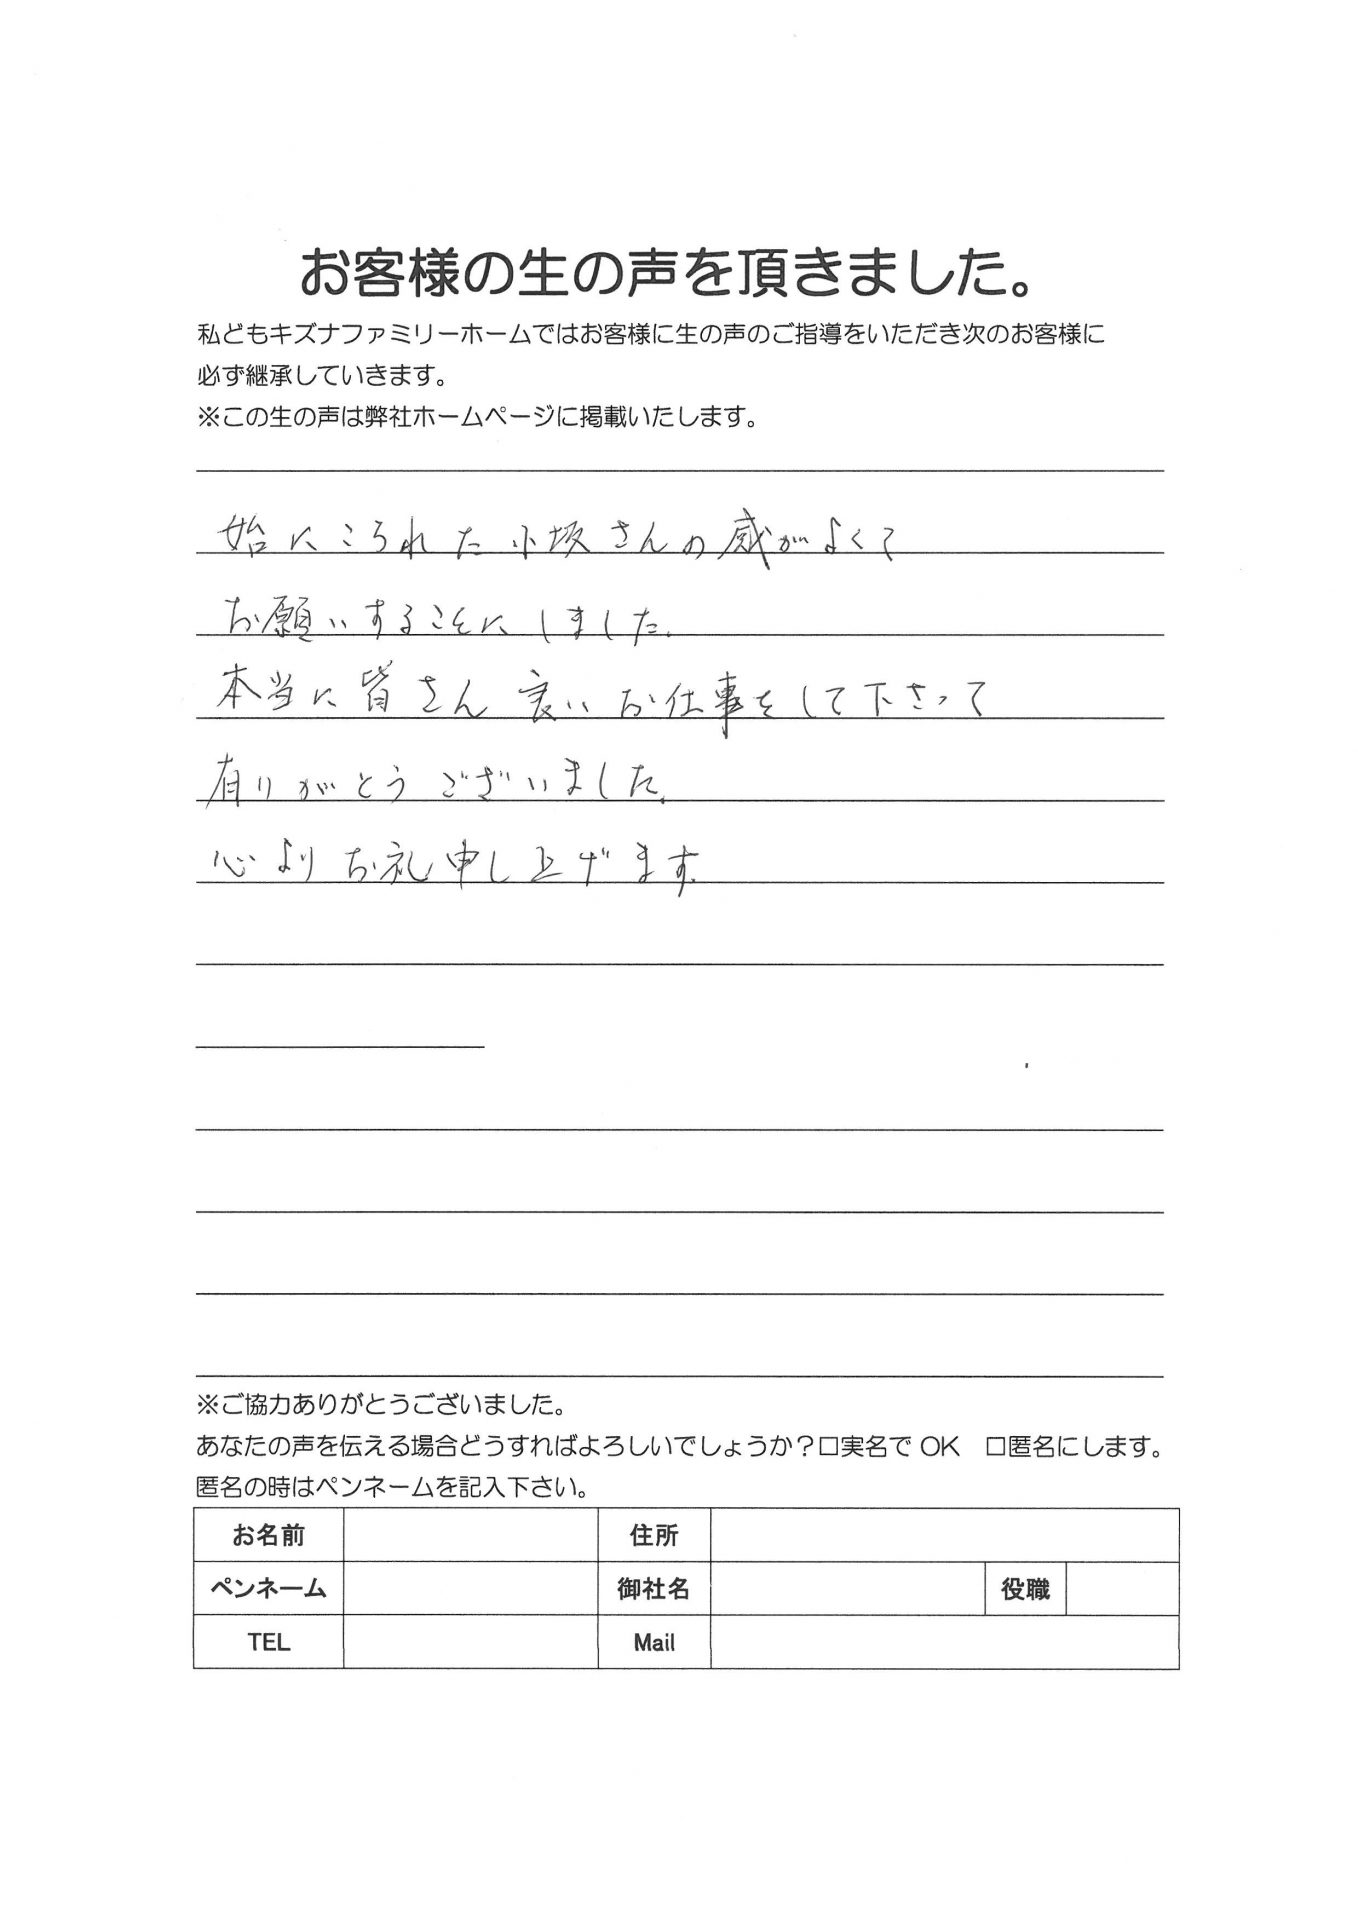 お客様の生の声を頂きました。
私どもキズナファミリーホームではお客様に生の声のご指導をいただき次のお客様に
必ず継承していきます。
※この生の声は弊社ホームページに掲載いたします。
始にこられた小坂さんの感がよくて
お願いすることにしました。
本当に皆さん良いお仕事をして下さって
有りがとうございました。
心よりお礼申し上げます。
※ご協力ありがとうございました。
あなたの声を伝える場合どうすればよろしいでしょうか？□実名でOK　□匿名にします。
匿名の時はペンネームを記入下さい。
お名前 住所
ペンネーム 御社名 役職
TEL Mail